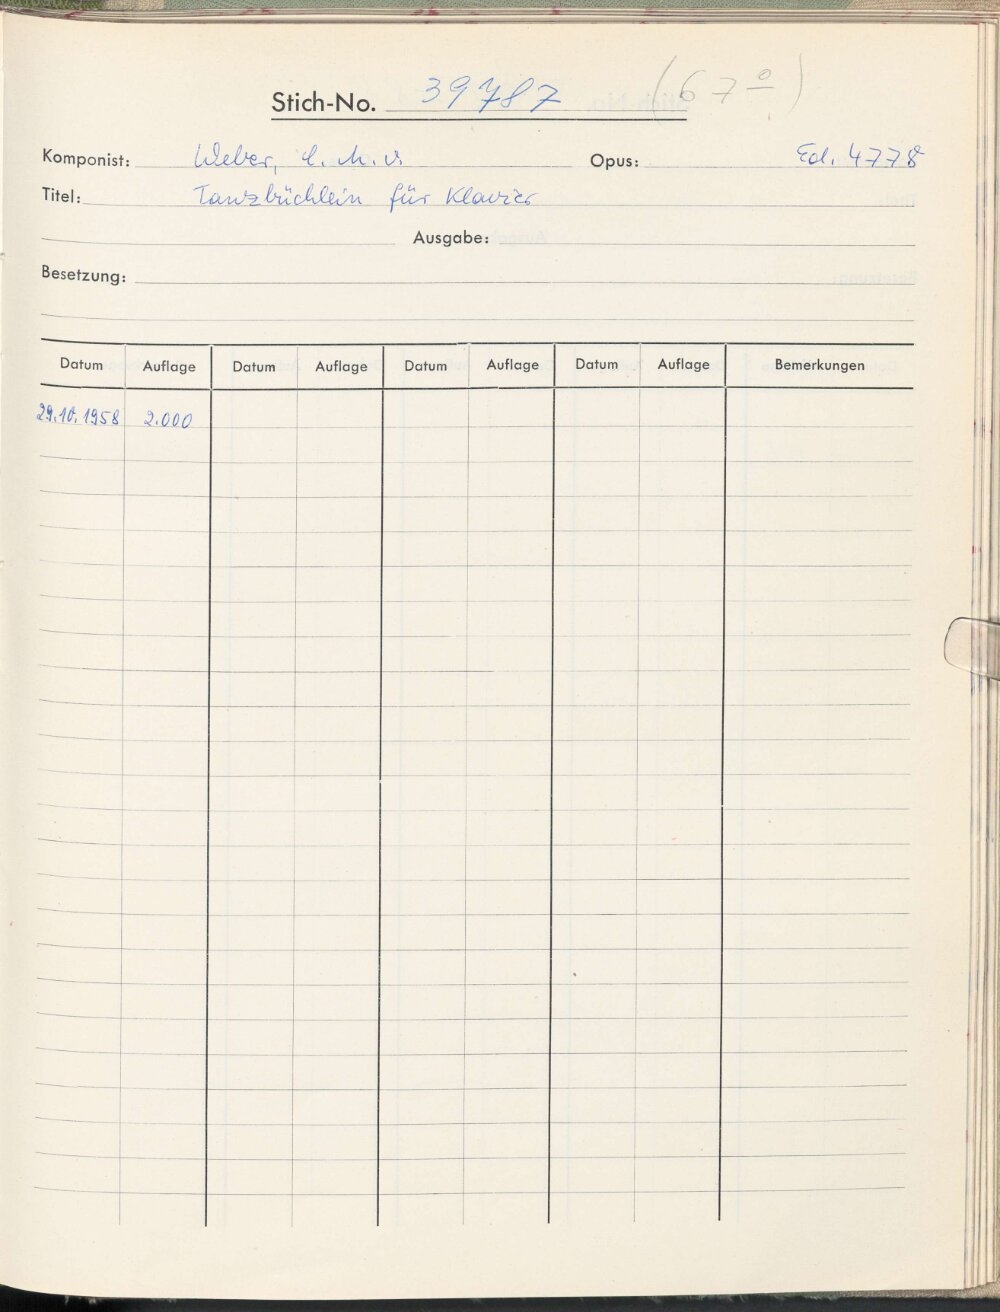 Stich-No. 39787 (67º)
Komponist: Weber, C. M. v. Opus: Ed. 4778
Titel: Tanzbüchlein für Klavier
Ausgabe:
Besetzung:
Datum Auflage Datum Auflage Datum Auflage Datum Auflage Bemerkungen
29.10.1958 2.000